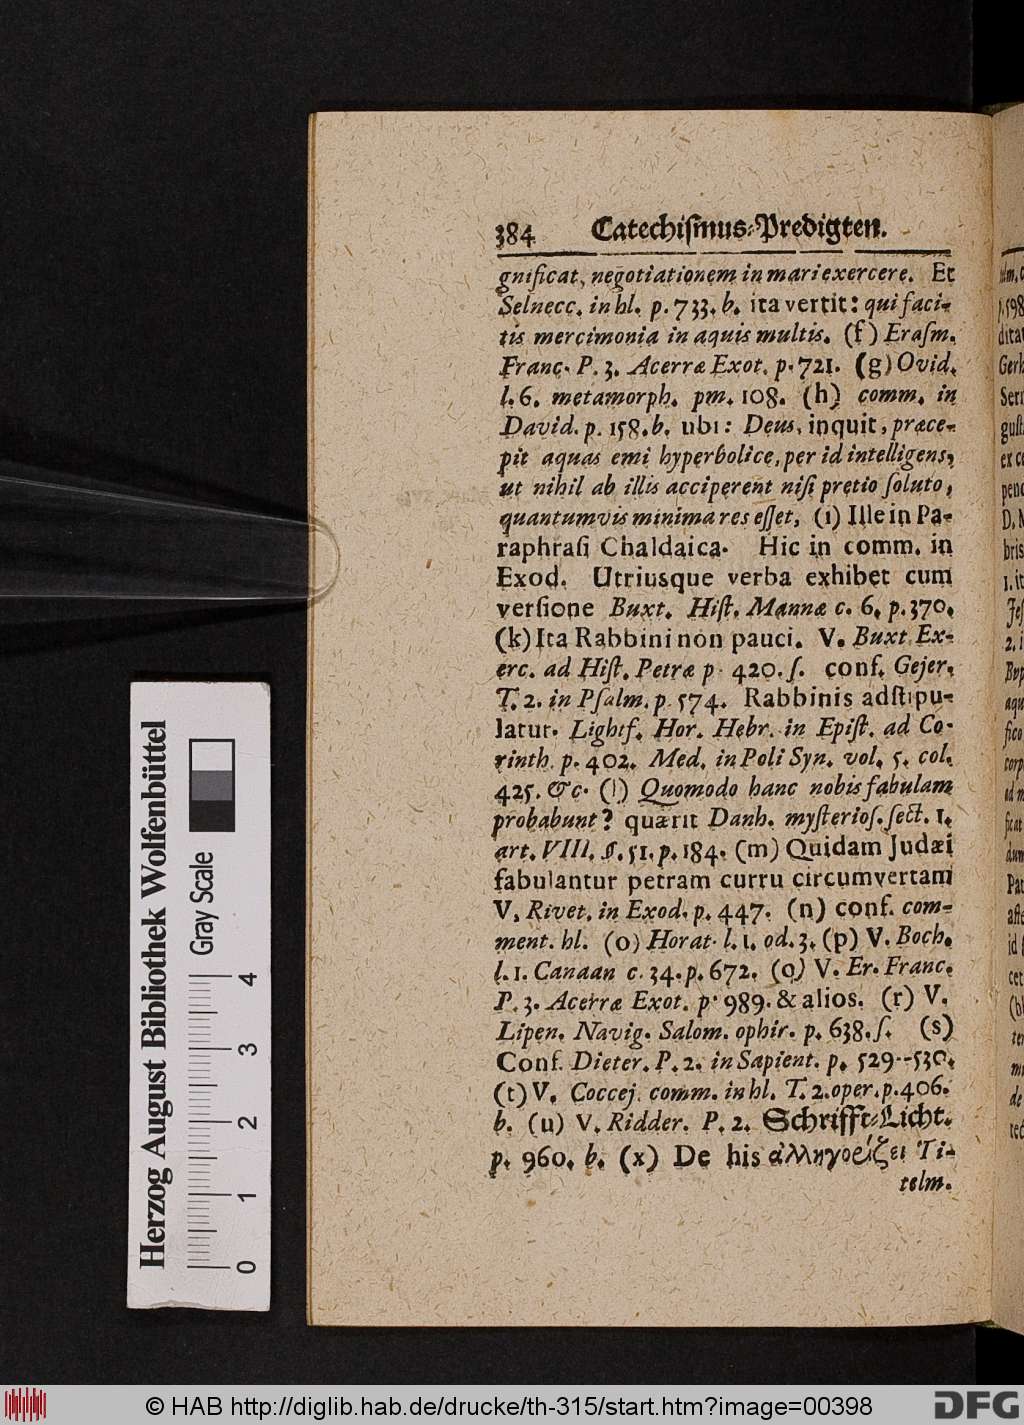 384 Catechiſmus-Predigten.
gnificat, negotiationem in mari exercere. Et
Selnecc. in hl. p. 733. b. ita vertit: qui faci-
tis mercimonia in aquis multis. (f) Eraſm.
Franc. P. 3. Acerræ Exot. p. 721. (g) Ovid.
l. 6. metamorph. pm. 108. (h) comm. in
David. p. 158. b. ubi: Deus, inquit, præce-
pit aquas emi hyperbolice, per id intelligens,
ut nihil ab illis acciperent niſi pretio ſoluto,
quantumvis minima res eſſet, (i) Ille in Pa-
raphraſi Chaldaica. Hic in comm. in
Exod. Utriusque verba exhibet cum
verſione Buxt. Hiſt. Mannæ c. 6. p. 370.
(k) Ita Rabbini non pauci. V. Buxt Ex-
erc. ad Hiſt. Petræ p. 420. ſ. conf. Gejer.
T. 2. in Pſalm. p. 574. Rabbinis adſtipu-
latur. Lightf. Hor. Hebr. in Epiſt. ad Co-
rinth. p. 402. Med. in Poli Syn. vol. 5. col.
425. &c. (l) Quomodo hanc nobis fabulam
probabunt? quærit Danh. myſterioſ. ſect. 1.
art. VIII. §. 51. p. 184. (m) Quidam Judæi
fabulantur petram curru circumvertam
V. Rivet. in Exod. p. 447. (n) conf. com-
ment. hl. (o) Horat. l. 1. od. 3. (p) V. Boch.
l. 1. Canaan c. 34. p. 672. (q) V. Er. Franc.
P. 3. Acerræ Exot. p. 989. & alios. (r) V.
Lipen. Navig. Salom. ophir. p. 638. ſ. (s)
Conf. Dieter. P. 2. in Sapient. p. 529--530.
(t) V. Coccej. comm. in hl. T. 2. oper. p. 406.
b. (u) V. Ridder. P. 2. Schrifft-Licht.
p. 960. b. (x) De his ἀλληγορίζει Ti-
telm.
Herzog August Bibliothek Wolfenbüttel
Gray Scale
0 1 2 3 4
© HAB http://diglib.hab.de/drucke/th-315/start.htm?image=00398
DFG